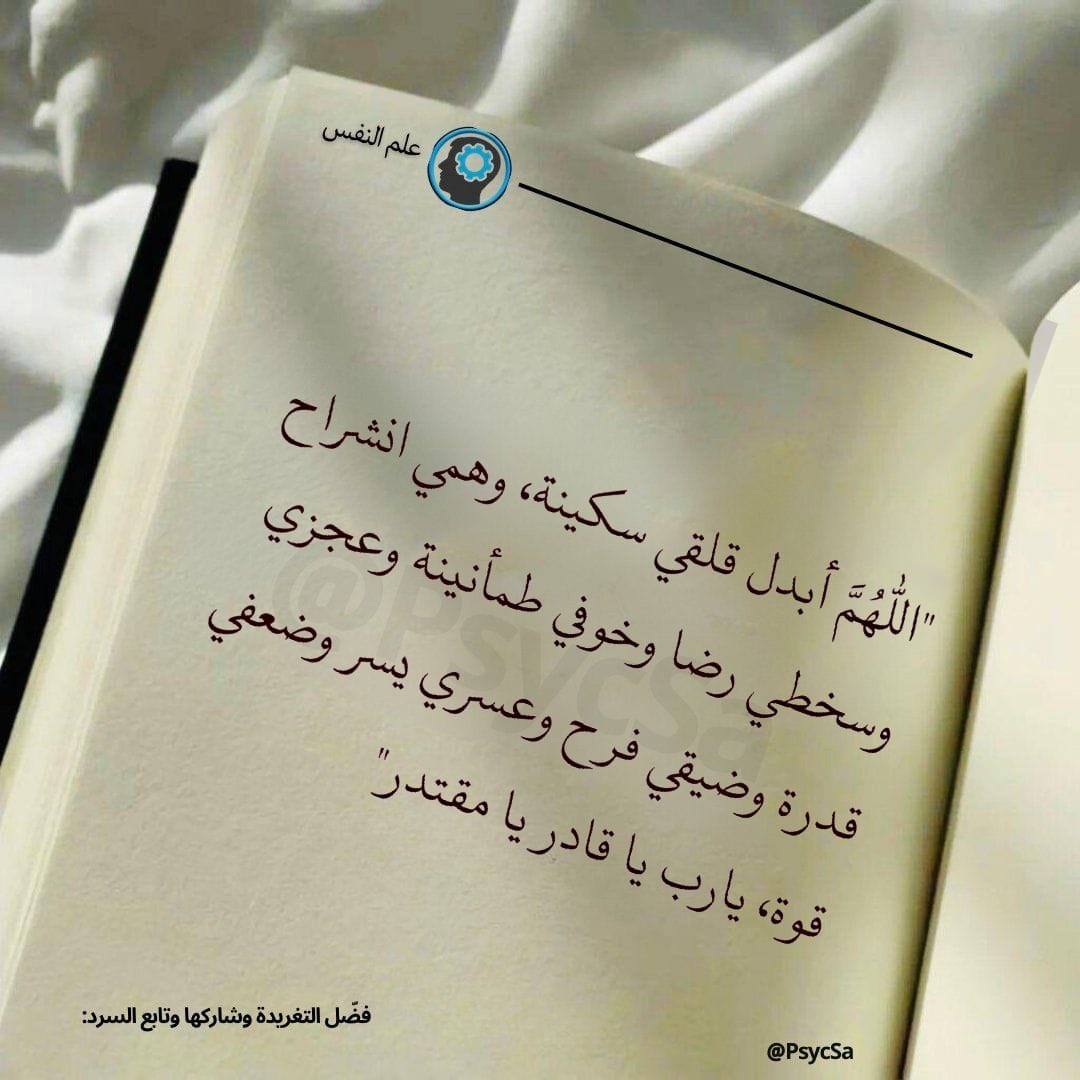 علم النفس
"اللَّهُمَّ أبدل قلقي سكينة، وهمي انشراح
وسخطي رضا وخوفي طمأنينة وعجزي
قدرة وضيقي فرح وعسري يسر وضعفي
قوة، يارب يا قادر يا مقتدر"
@PsycSa
فضّل التغريدة وشاركها وتابع السرد:
@PsycSa